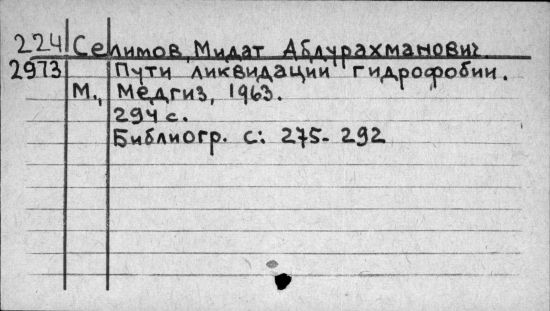 224 Селимов, Мидат Абдурахманович
2973 Пути ликвидации гидрофобии.
М., Медгиз, 1963.
294 с.
Библиогр. с: 275-292